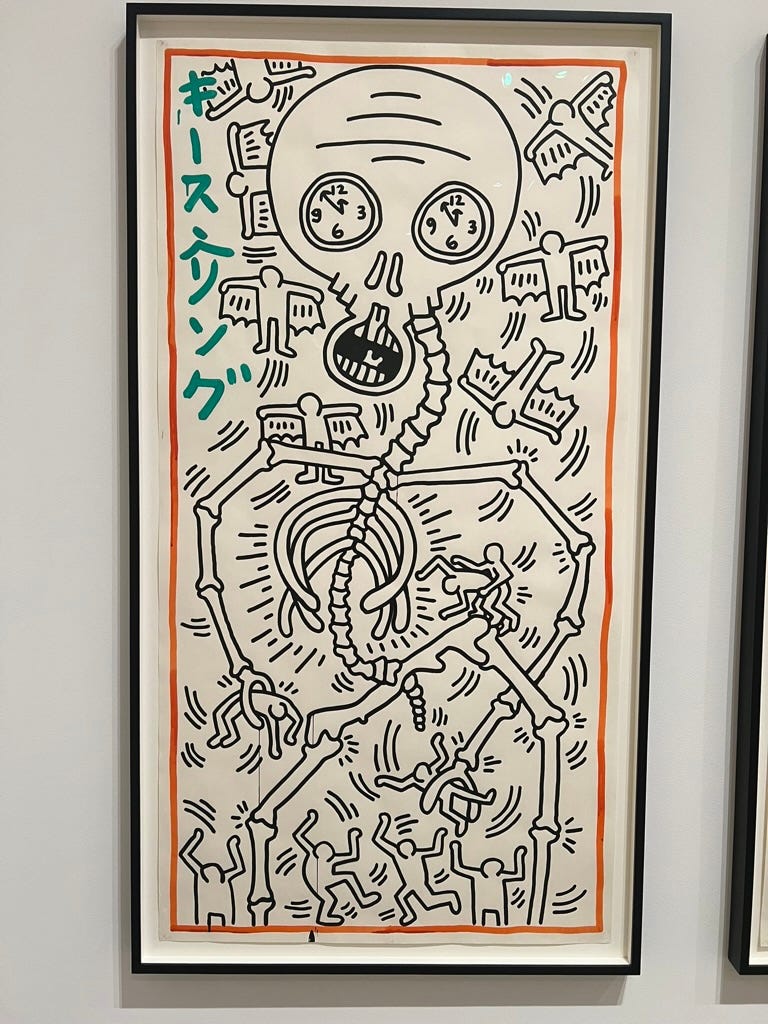 キースヘリング
12
9 3
6
12
9 3
6